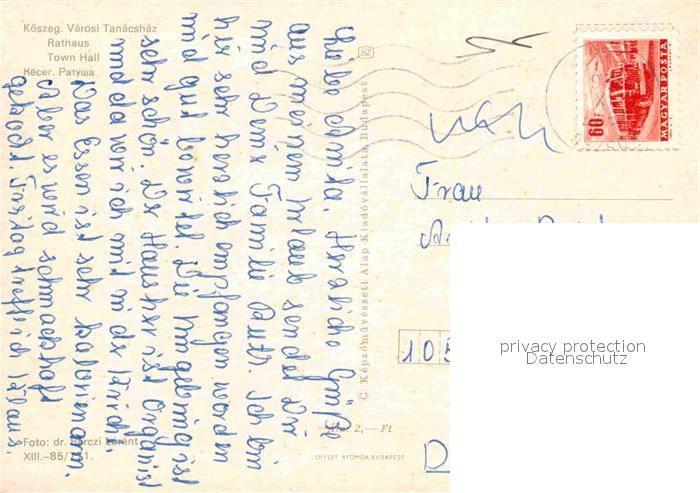 Kőszeg. Városi Tanácsház
Rathaus
Town Hall
Кёсег. Ратуша
Liebe Herzliche Grüße
aus meinem Urlaub sendet Dir
und Deiner Familie Ruth. Ich bin
hier sehr herzlich empfangen worden
und gut bewirtet. Die Umgebung ist
sehr schön. Der Hausherr ist Organist
und da war ich mit in der Kirche.
Das Essen ist sehr kalorienarm.
Aber es wird schmackhaft
gekocht. Freitag treffe ich Klaus.
Foto: dr. Bérczi Lóránt
XIII.—85/731.
SZ
C Képzőművészeti Alap Kiadóvállalata, Budapest
Ára: 2,— Ft
OFFSET NYOMDA BUDAPEST
60
MAGYAR POSTA
Frau
105
D
privacy protection
Datenschutz